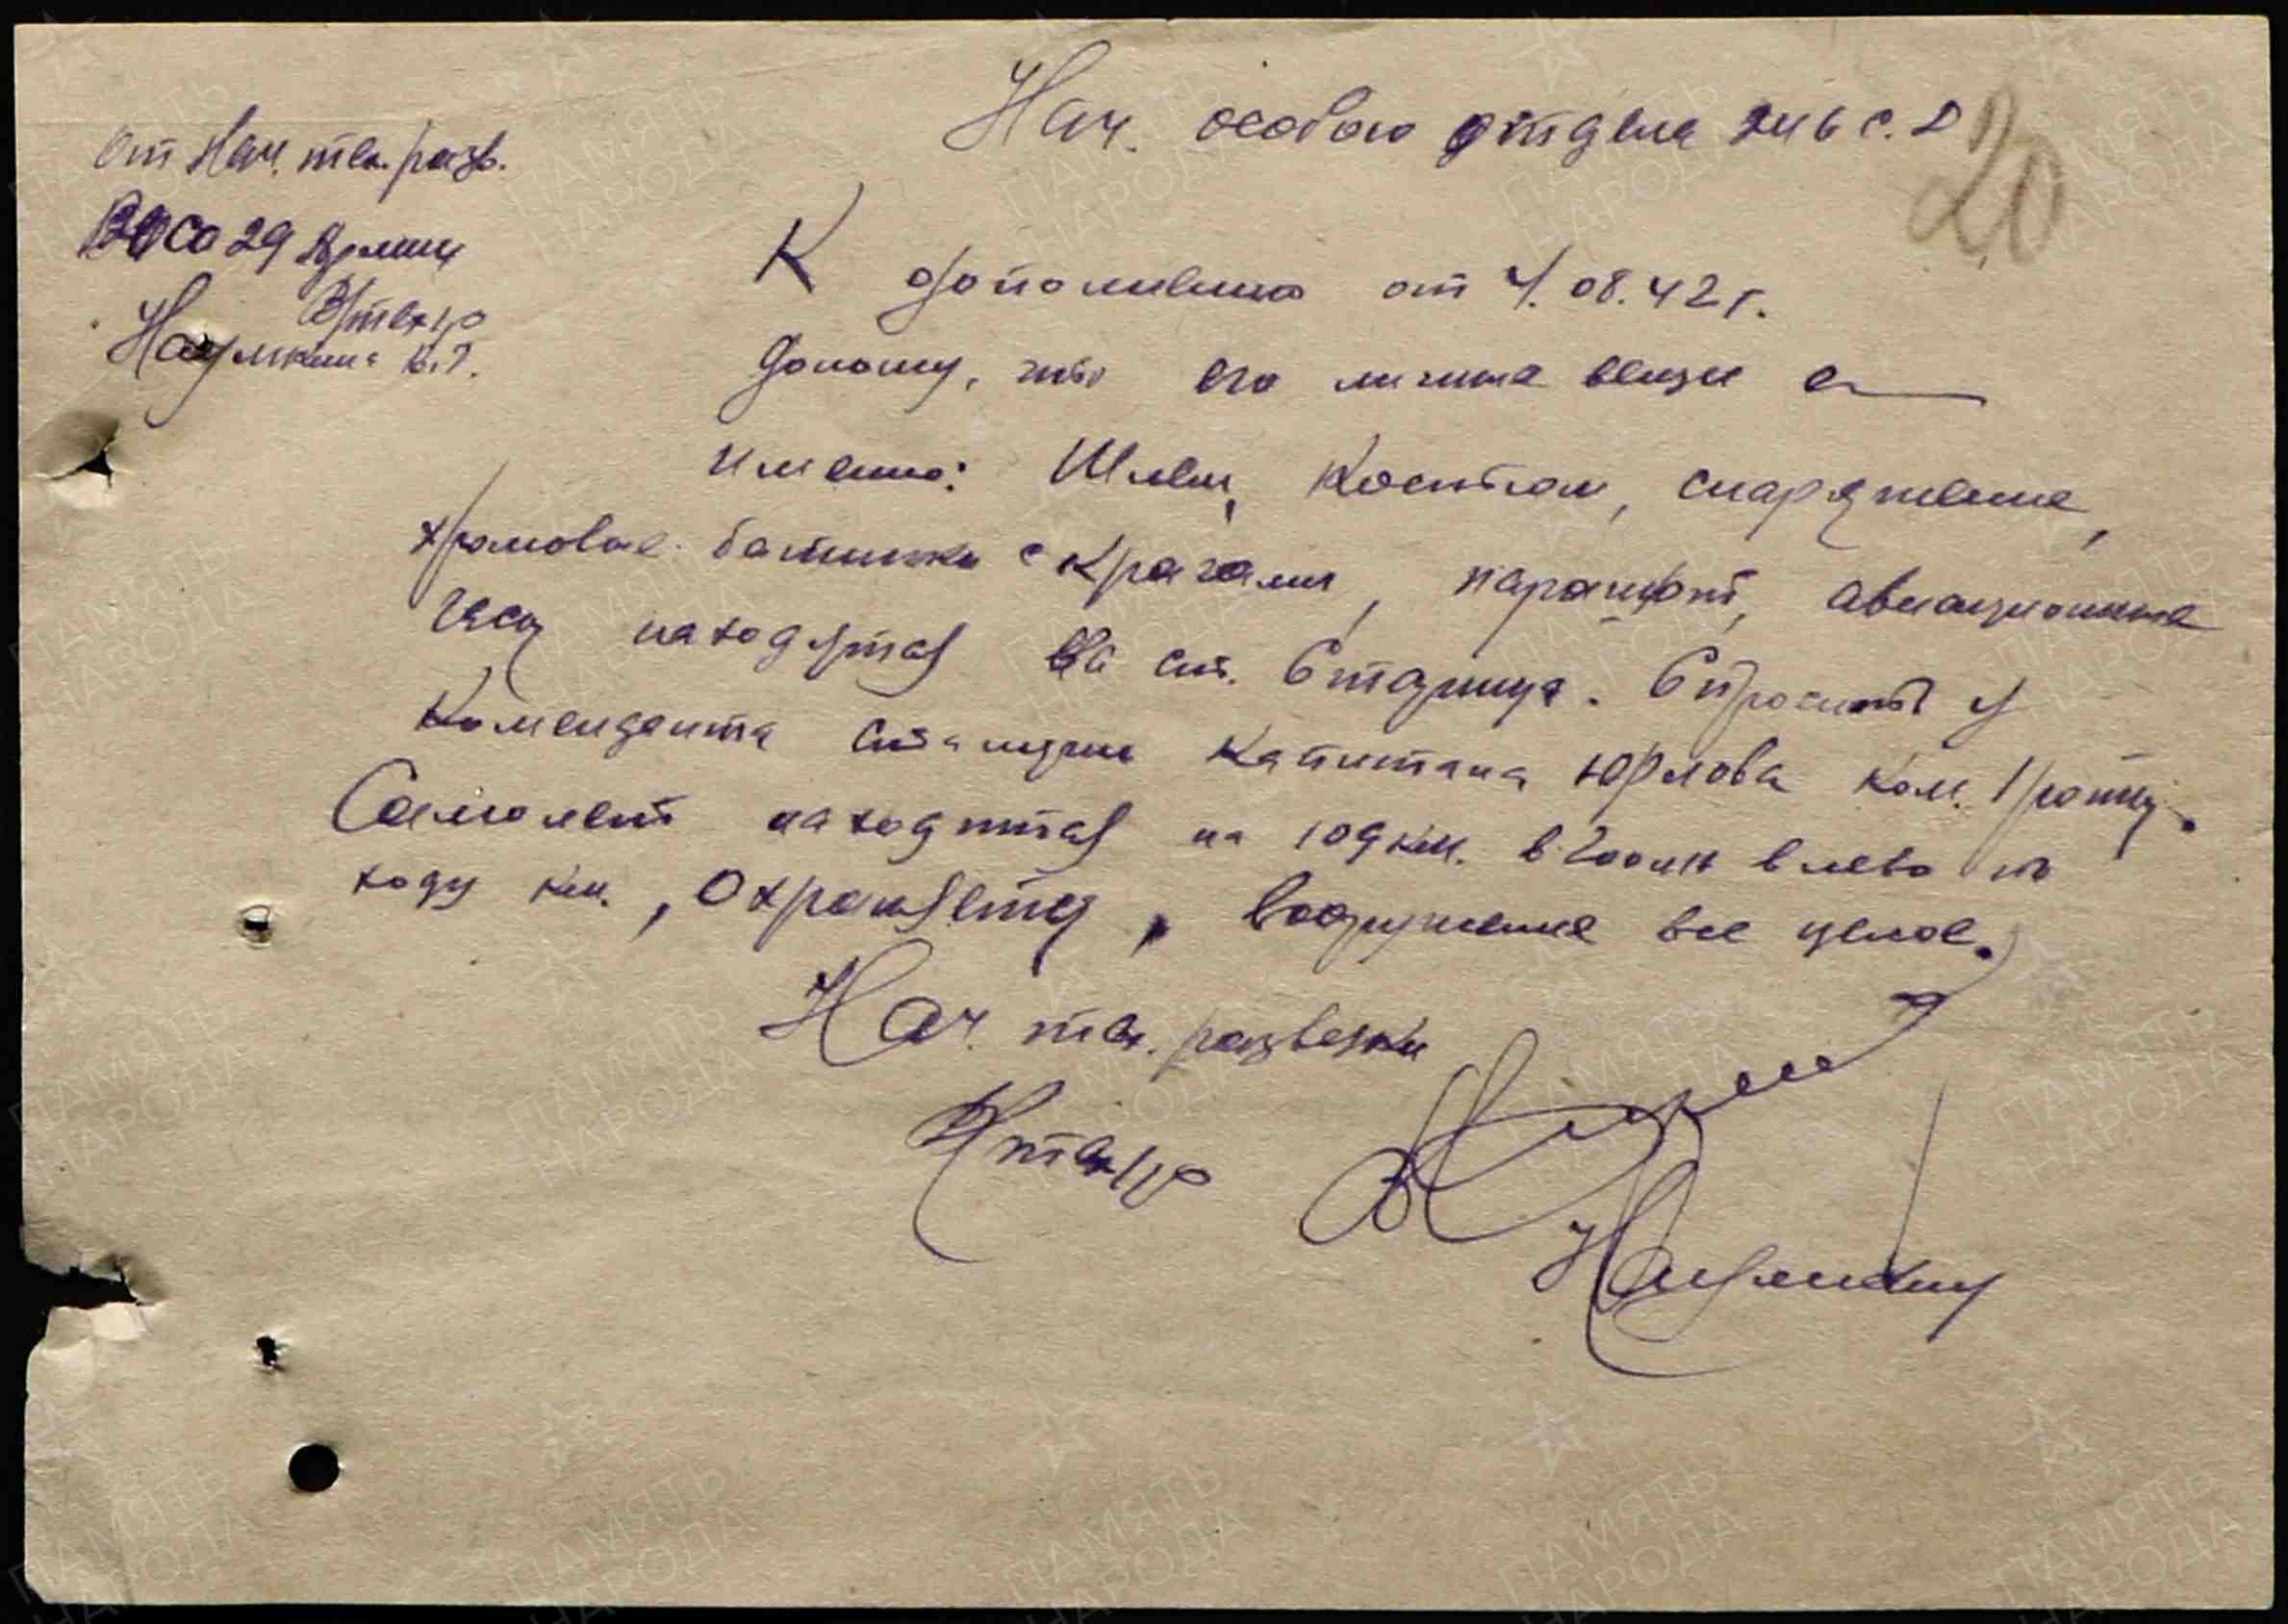 Нач. особого отдела 246 с.д
20
От Нач. тех. разв.
ВОСО 29 Армии
В/техн
Наумкина В.Г.
К дополнению от 4.08.42 г.
Доношу, что его личные вещи а
именно: Шлем, Костюм, снаряжение,
хромовые ботинки с крагами, парашют, авиационные
часы находятся на ст. Старица. Спросить у
Коменданта станции Капитана Юрлова ком. 1 роты.
Самолет находится на 109 км. в 200 мт влево по
ходу км., Охраняется, вооружение все целое.
Нач. тех. разведки
В/техн
Наумкин